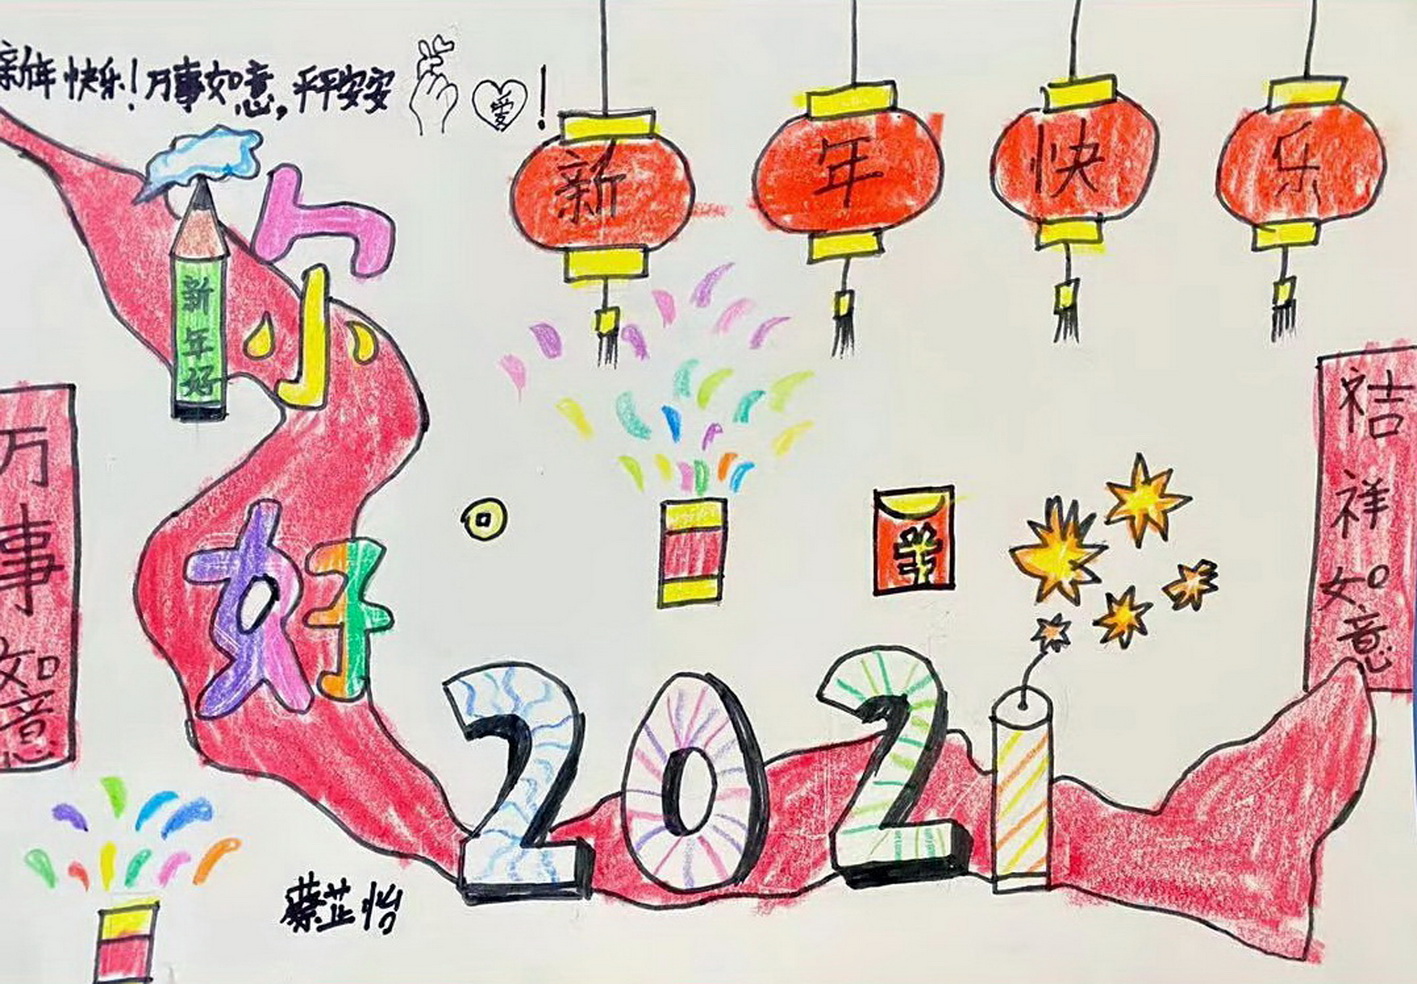 新年快乐！万事如意，平平安安 爱！
新年快乐
新年好
你好
万事如意
袺祥如意
2021
蔡芷怡